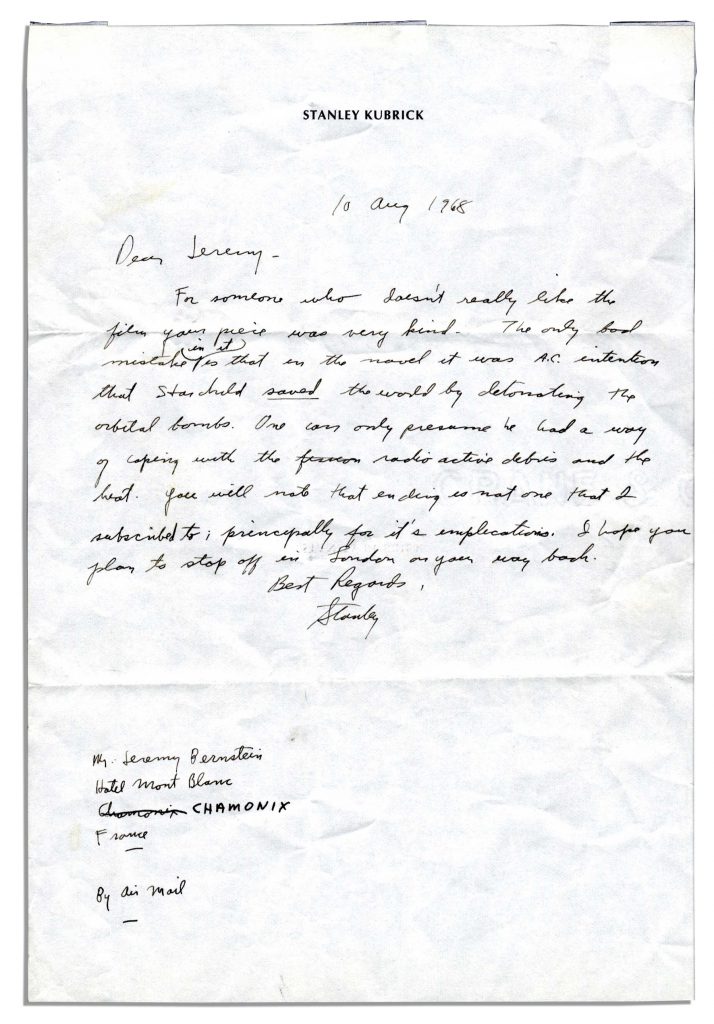 STANLEY KUBRICK
10 Aug 1968
Dear Jeremy -
For someone who doesn't really like the
film your piece was very kind. The only bad
mistake in it is that in the novel it was A.C. intention
that Star child saved the world by detonating the
orbital bombs. One can only presume he had a way
of coping with the radio active debris and the
heat. You will note that ending is not one that I
subscribed to; principally for it's implications. I hope you
plan to stop off in London on your way back.
Best Regards,
Stanley
Mr. Jeremy Bernstein
Hotel Mont Blanc
Chamonix CHAMONIX
France
By Air Mail